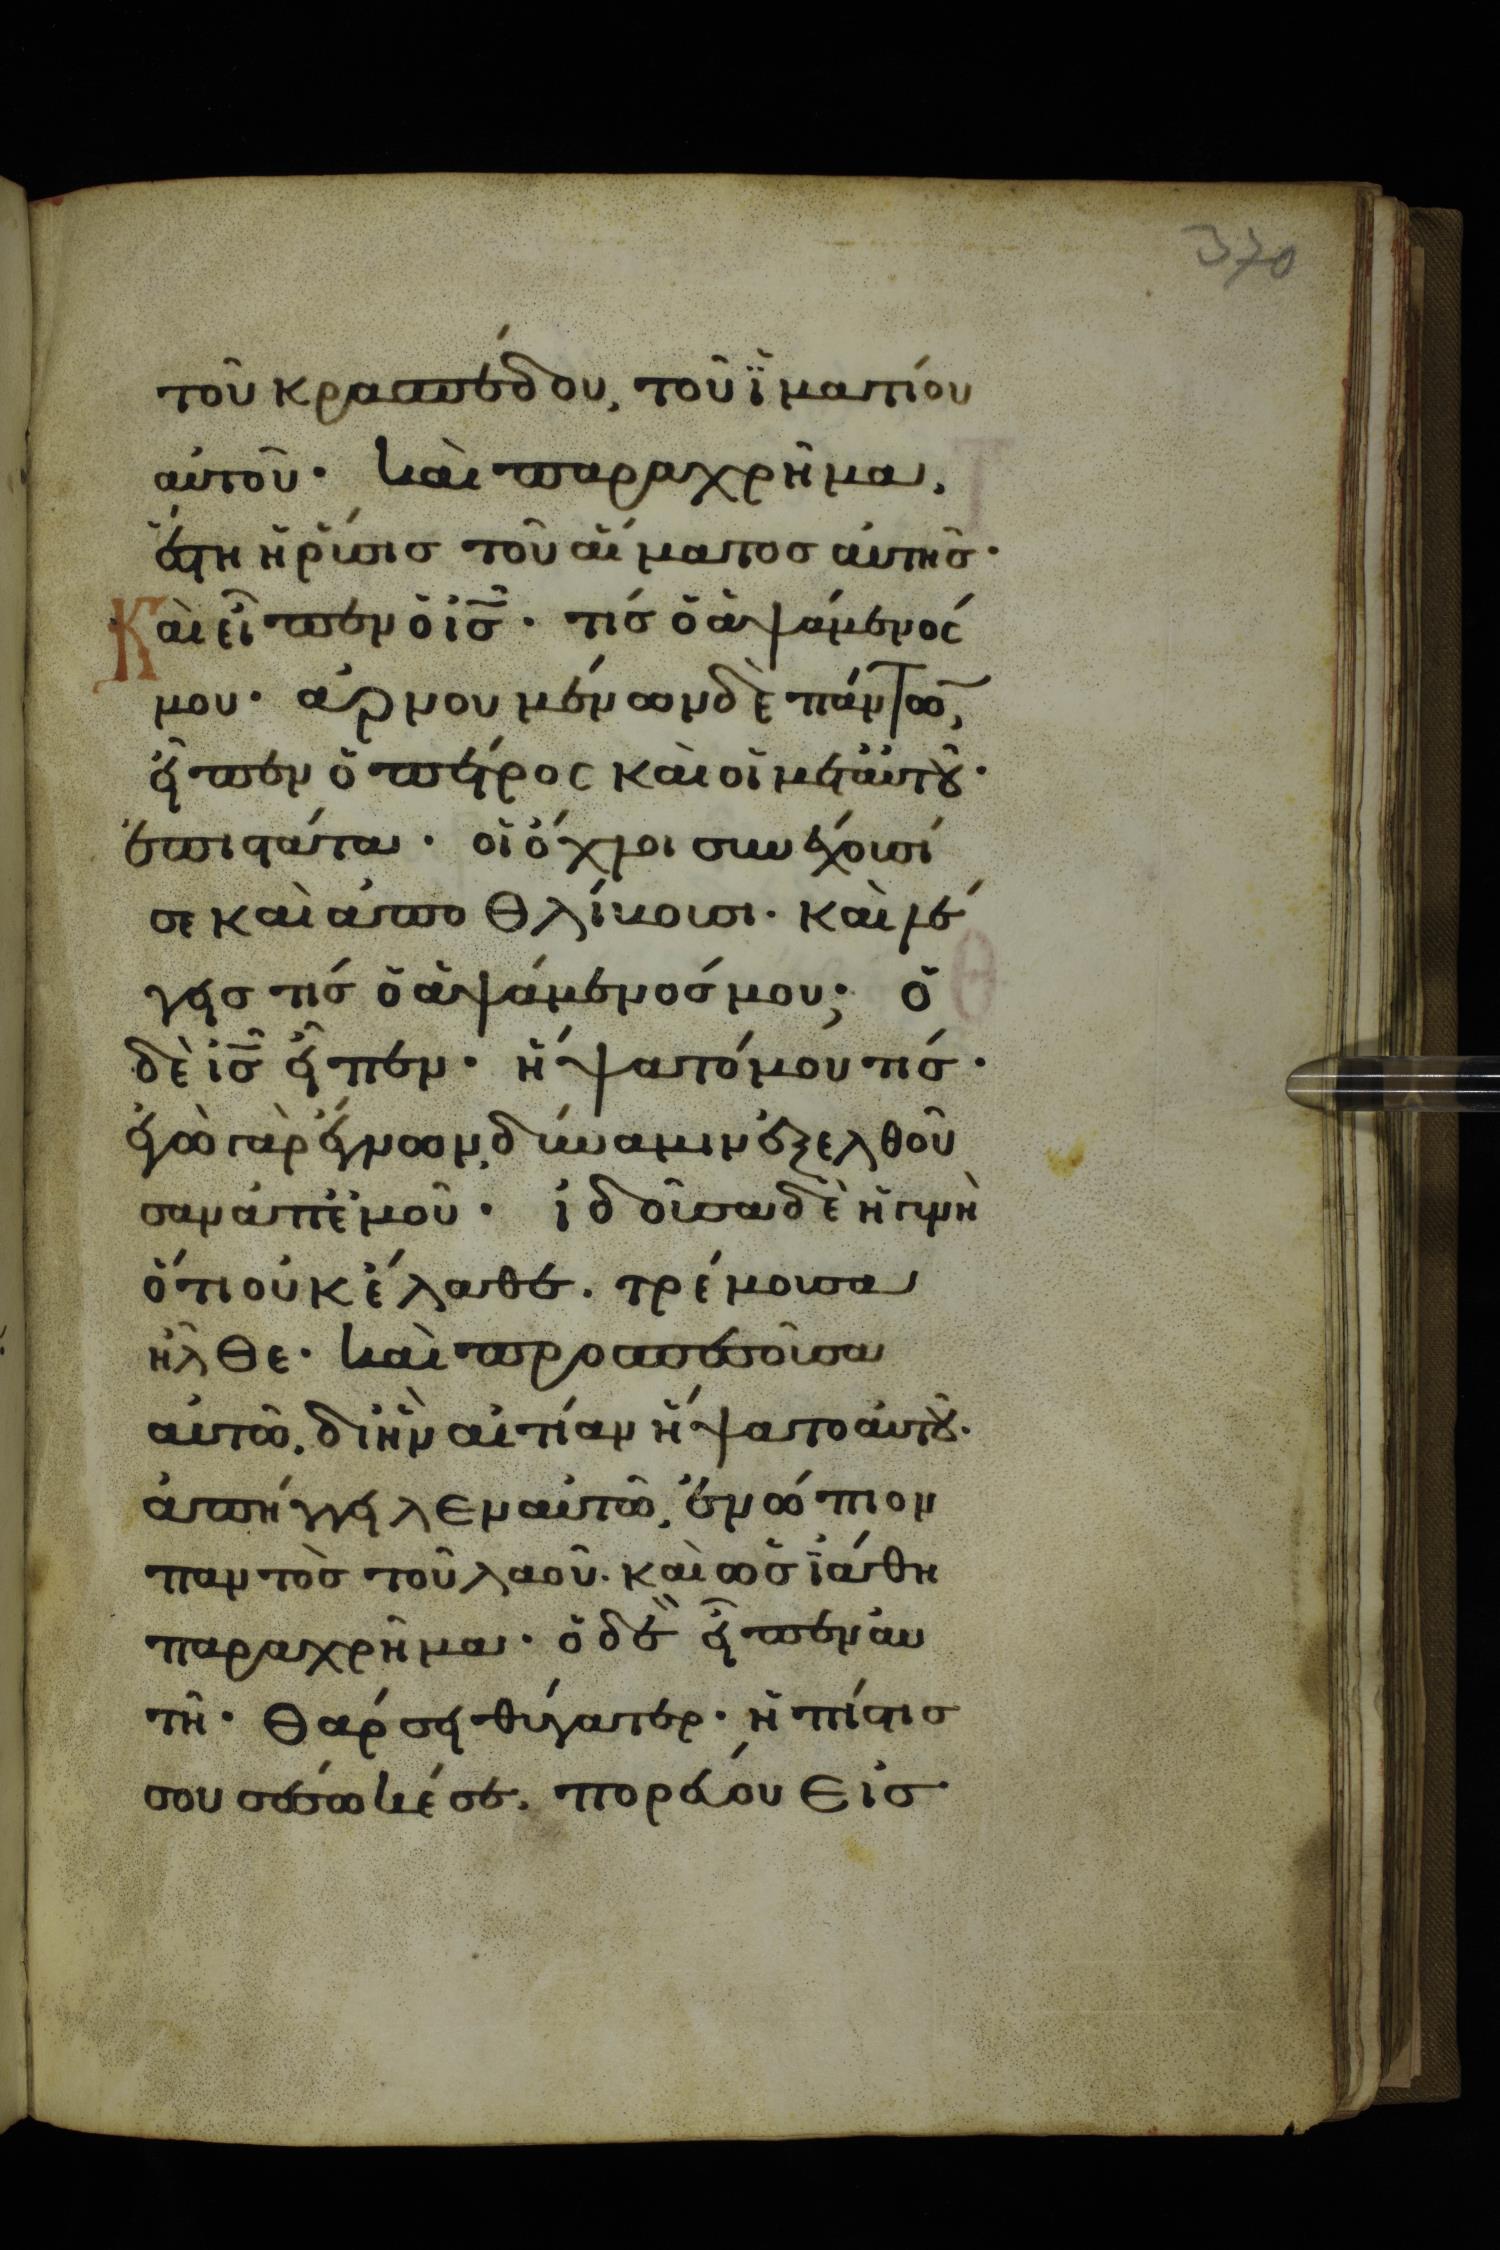 370
τοῦ κρασπέδου, τοῦ ἱματίου
αὐτοῦ· καὶ παραχρῆμα,
ἔστη ἡ ῥύσισ τοῦ αἵματοσ αὐτῆσ·
Καὶ εἶπεν ὁ ισ̅· τίσ ὁ ἁψάμενός
μου· ἀρνουμένων δὲ πάντων,
εἶπεν ὁ πέτρος καὶ οἱ μετ αὐτοῦ·
ἐπιστάτα· οἱ ὄχλοι συνέχουσί
σε καὶ ἀποθλίβουσι· καὶ λέ
γεισ τίσ ὁ ἁψάμενόσ μου; ὁ
δὲ ισ̅ εἶπεν· ἥψατό μού τισ·
ἐγὼ γὰρ ἔγνων, δύναμιν ἐξελθοῦ
σαν ἀπ ἐμοῦ· ἰδοῦσα δὲ ἡ γυνὴ
ὅτι οὐκ ἔλαθε. τρέμουσα
ἦλθε· καὶ προσπεσοῦσα
αὐτῶ, δι ἣν αἰτίαν ἥψατο αὐτοῦ.
ἀπήγγειλεν αὐτῶ, ἐνώπιον
παντὸσ τοῦ λαοῦ. καὶ ὡσ ἰάθη
παραχρῆμα· ὁ δὲ εἶπεν αὐ
τῆ· Θάρσει θύγατερ· ἡ πίστισ
σου σέσωκέ σε. πορεύου εἰσ